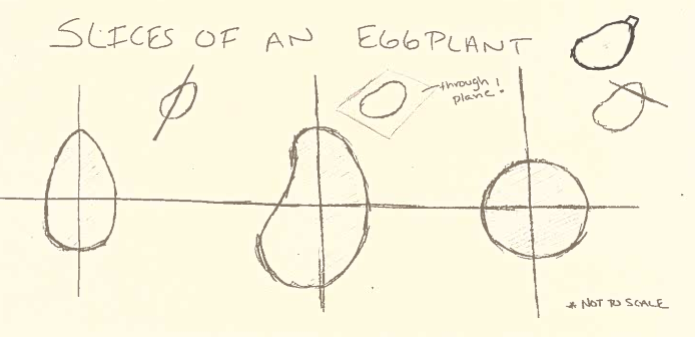 SLICES OF AN EGGPLANT
through!
plane.
* NOT TO SCALE